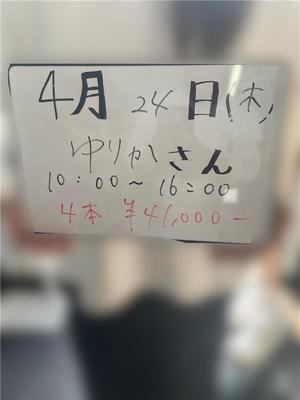 4月 24日(木)
ゆりかさん
10:00～16:00
4本 ¥41,000-